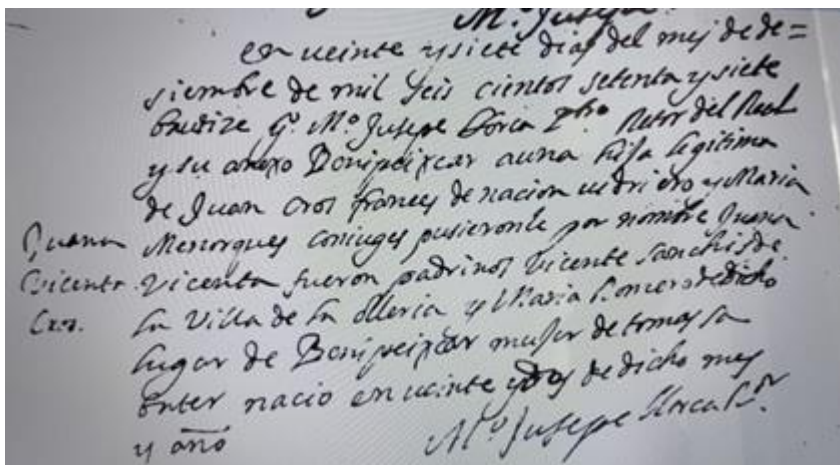 Mº Jusepe
en ueinte y siete dias del mes de de=
siembre de mil seis cientos setenta y siete
Bautize yº Mº Jusepe Llorca Pbro Retor del Real
y su anexo Benipeixcar a una hija legitima
de Juan Cros frances de nacion uidriero y Maria
Juana Menorques coniuges pusieronle por nombre Juana
Vicenta Vicenta fueron padrinos Vicente Sanchis de
Cros. la Villa de la olleria y Maria Romero de dicho
lugar de Benipeixcar muger de tomas
nacio en ueinte y dos de dicho mes
y año Mº Jusepe Llorca Rr